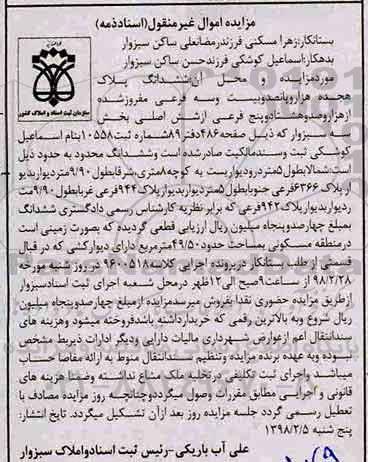 مزایده اموال غیرمنقول(اسنادذمه)
بستانکار:زهرا مسکنی فرزندرمضانعلی ساکن سبزوار
بدهکار:اسماعیل کوشکی فرزندحسن ساکن سبزوار
موردمزایده و محل آن:ششدانگ پلاک
هجده هزاروپانصدوبیست وسه فرعی مفروزشده
ازهزاروصدوهشتادوپنج فرعی ازشش اصلی بخش
سه سبزوار که ذیل صفحه۴۸۶دفتر۸۹شماره ثبت۱۰۵۵۸بنام اسماعیل
کوشکی ثبت وسندمالکیت صادرشده است وششدانگ محدود به حدود ذیل
است:شمالابطول۵متردرودیواریست به کوچه۸متری،شرقابطول۹/۹۰متردیواربدیو
ار پلاک۶۳۶۶فرعی جنوبابطول۵متردیواربدیوارپلاک۹۴۴فرعی غربابطول۹/۹۰مت
ردیواربدیوارپلاک۹۴۲فرعی که برابر نظریه کارشناس رسمی دادگستری ششدانگ
بمبلغ چهارصدوپنجاه میلیون ریال ارزیابی قطعی گردیده که بصورت زمینی است
درمنطقه مسکونی بمساحت حدود۴۹/۵۰مترمربع دارای دیوارکشی که در قبال
قسمتی از طلب بستانکار درپرونده اجرایی کلاسه۹۶۰۰۵۱۸ در روز شنبه مورخه
۹۸/۲/۲۸ از ساعت۹صبح الی۱۲ظهر درمحل شعبه اجرای ثبت اسنادسبزوار
ازطریق مزایده حضوری نقدا بفروش میرسدمزایده ازمبلغ چهارصدوپنجاه میلیون
ریال شروع وبه بالاترین رقمی که خریدارداشته باشدفروخته میشود وهزینه های
سندانتقال اعم ازعوارض شهرداری مالیات دارایی ودیگر ادارات ذیربط مشخص
نبوده وبه عهده برنده مزایده وتنظیم سندانتقال منوط به ارائه مفاصا حساب
میباشد واجرای ثبت تکلیفی درتخلیه ملک مشاع نداشته وضمنا هزینه های
قانونی و اجرایی مطابق مقررات وصول میگرددوچنانچه روز مزایده مصادف با
تعطیل رسمی گردد جلسه مزایده روز بعد ازآن تشکیل میگردد. تاریخ انتشار:
پنج شنبه ۱۳۹۸/۲/۵
علی آب باریکی-رئیس ثبت اسنادواملاک سبزوار
سازمان ثبت اسناد و املاک کشور